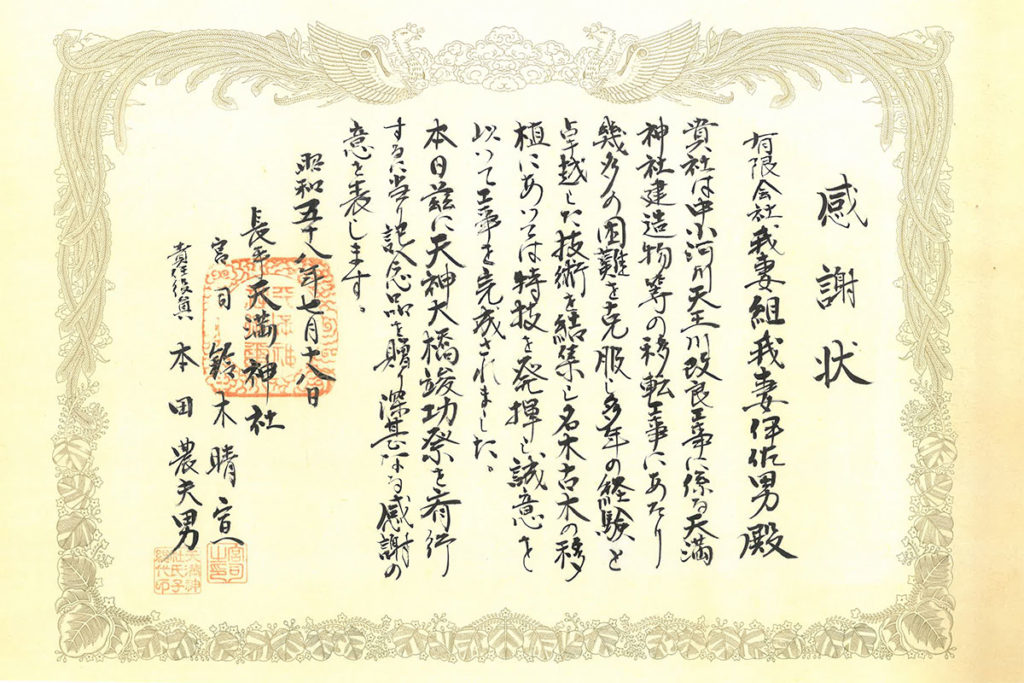 感謝状
有限会社我妻組我妻伊佐男殿
貴社は中小河川天王川改良工事に係る天満
神社建造物等の移転工事にあたり
幾多の困難を克服し多年の経験と
卓越した技術を結集し名木古木の移
植にあいては特技を発揮し誠意を
以いて工事を完成されました、
本日茲に天神大橋竣功祭を斉行
するに当り記念品を贈り深甚なる感謝の
意を表します。
昭和五十八年七月十八日
長手天満神社
宮司 鈴木晴宣
責任役員 本田農夫男